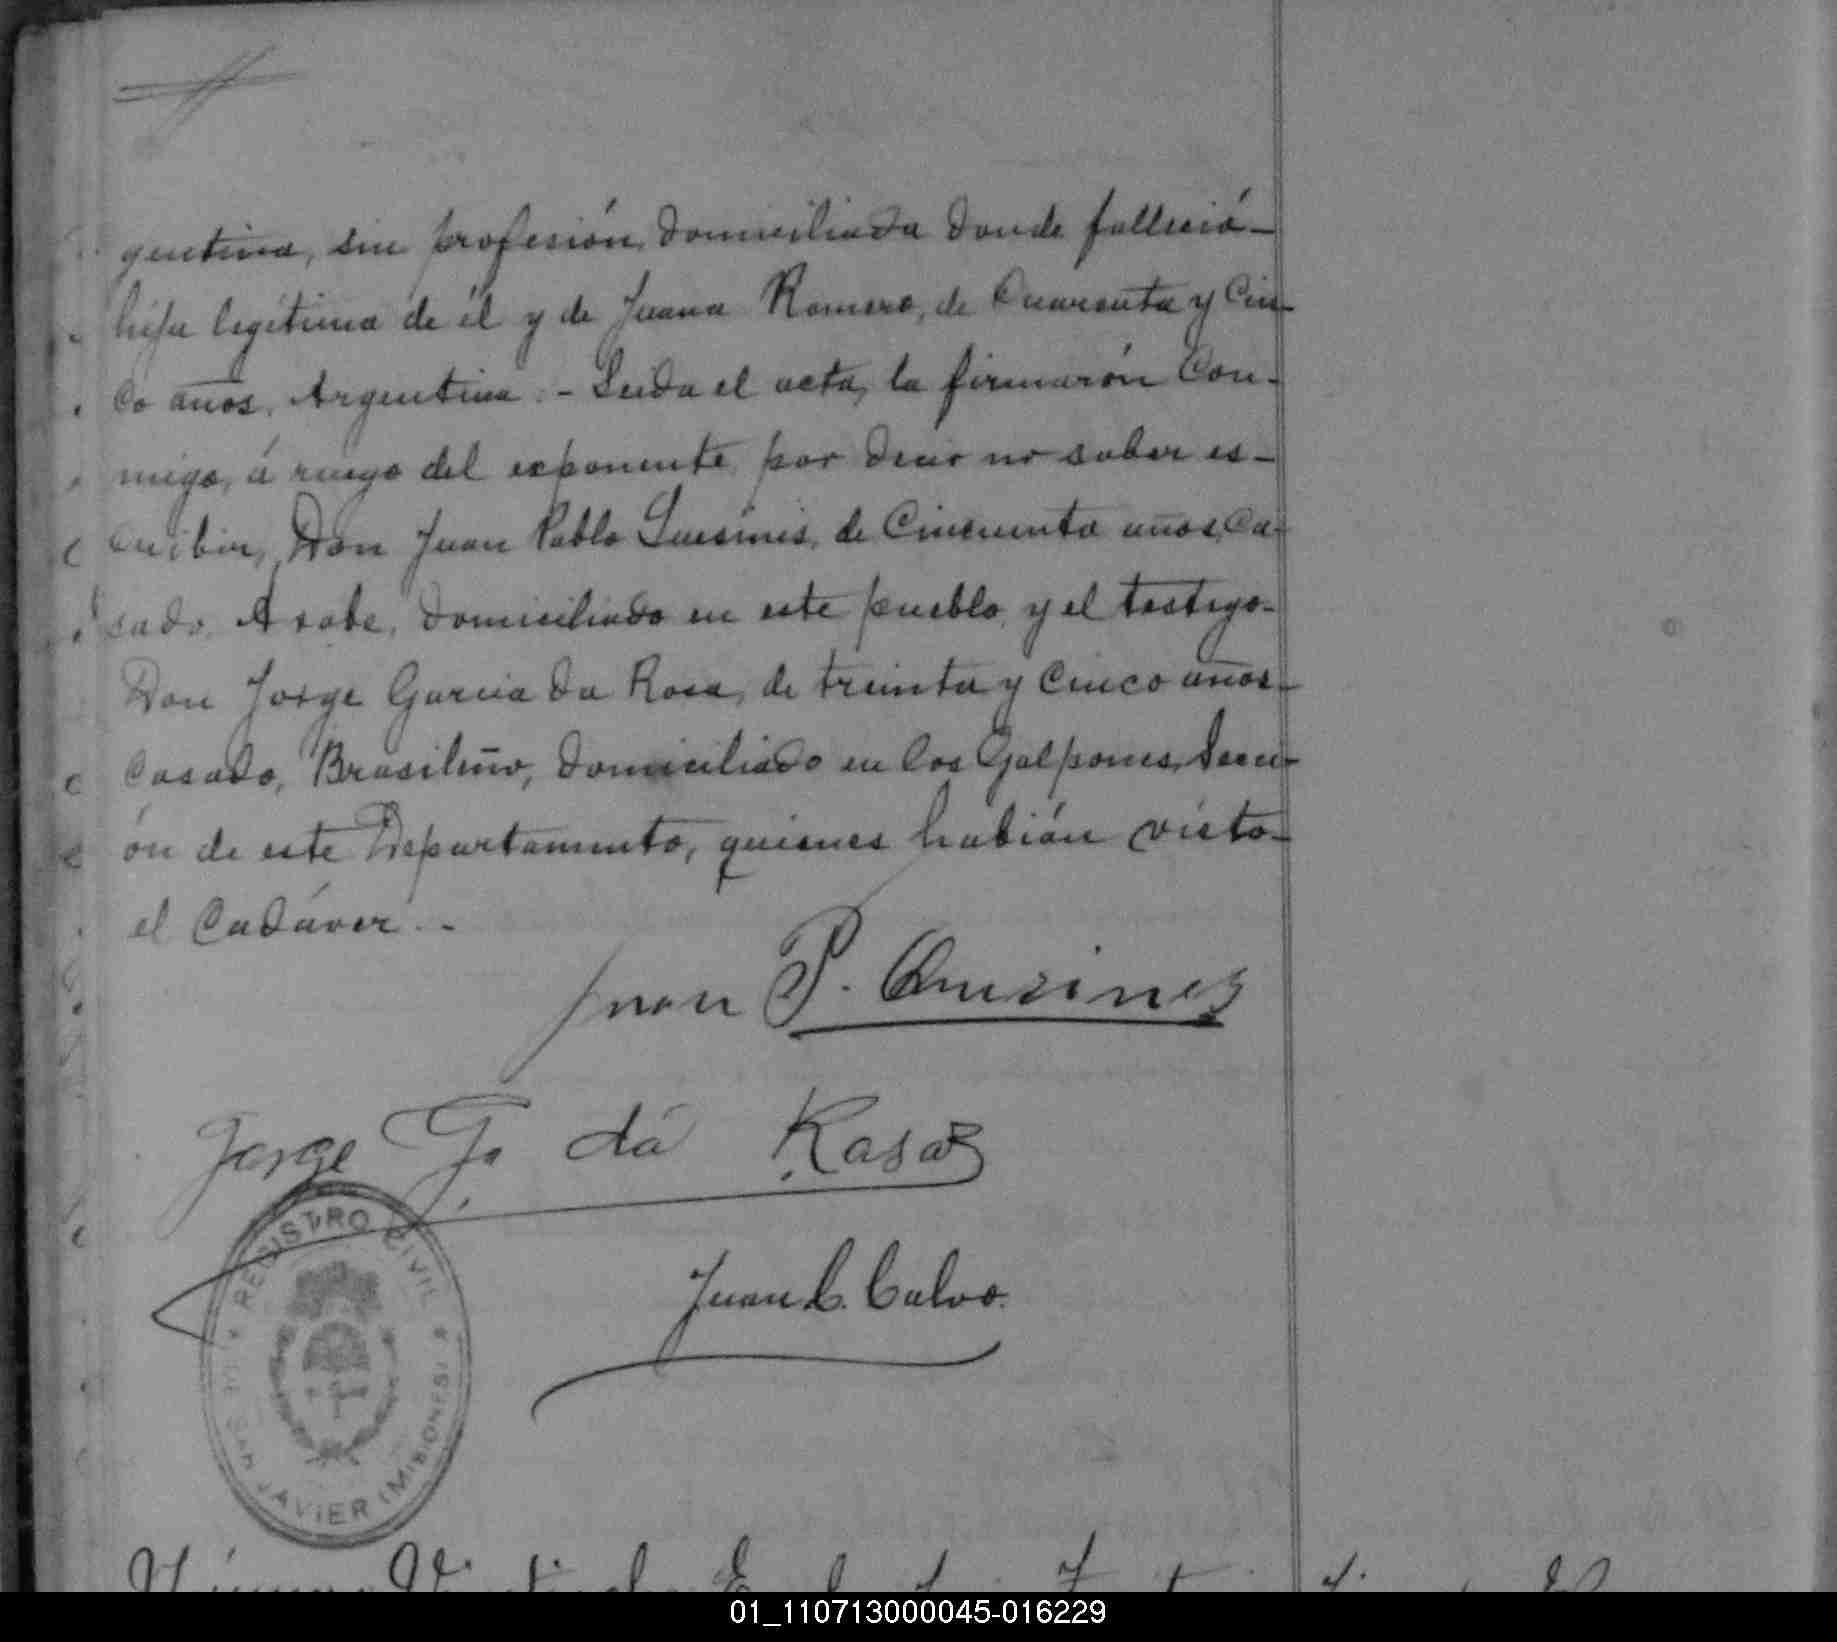 gentina, sin profesión, domiciliada donde falleció-
hija legítima de él y de Juana Romero, de Cuarenta y Cin-
co años, Argentina.- Leida el acta, la firmarón Con-
migo, á ruego del exponente, por decir no saber es-
cribir, Don Juan Pablo de Cincuenta años, Ca-
sado, Arabe, domiciliado en este pueblo, y el testigo-
Don Jorge Garcia da Rosa, de treinta y Cinco años-
Casado, Brasileño, domiciliado en los Galpones, Secci-
ón de este Departamento, quienes habián visto-
el Cadáver.-
Juan P.
Jorge Ga dá Rosa
Juan C. Calvo.
REGISTRO CIVIL
SAN JAVIER (MISIONES)
01_110713000045-016229